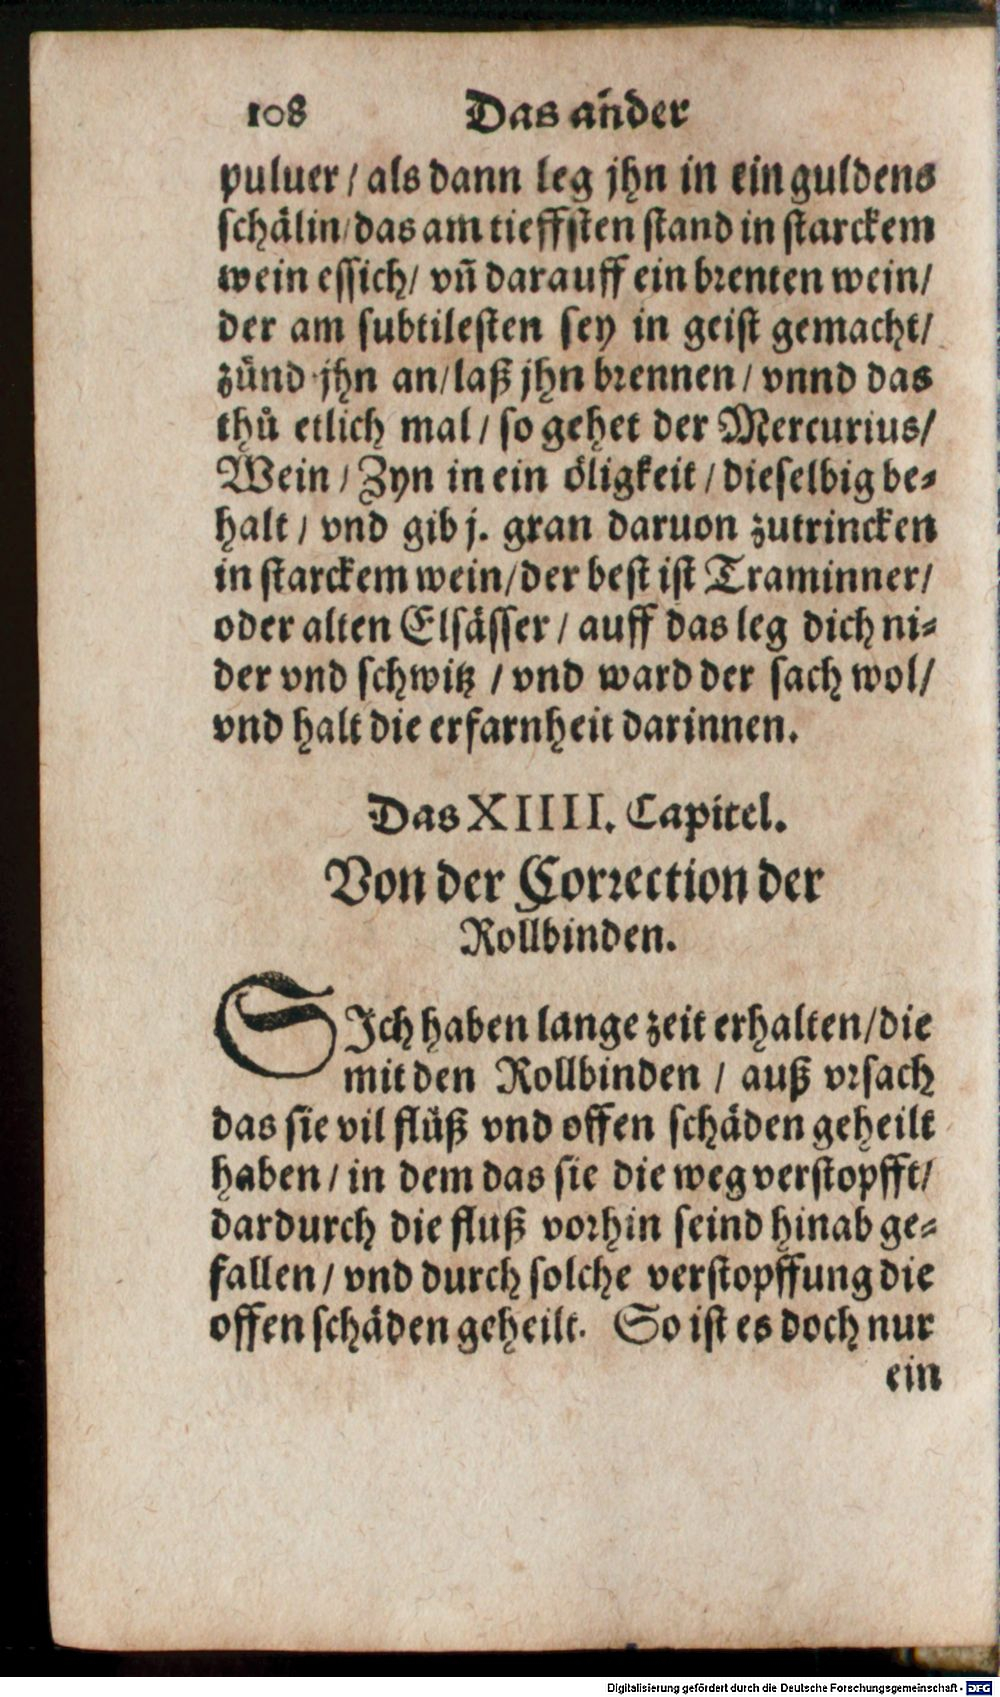 108 Das ander
puluer / als dann leg jhn in ein guldens
schälin / das am tieffsten stand in starckem
wein essich / vñ darauff ein brenten wein /
der am subtilesten sey in geist gemacht /
zünd jhn an / laß jhn brennen / vnnd das
thů etlich mal / so gehet der Mercurius /
Wein / Zyn in ein öligkeit / dieselbig be-
halt / vnd gib j. gran daruon zutrincken
in starckem wein / der best ist Traminner /
oder alten Elsässer / auff das leg dich ni-
der vnd schwitz / vnd ward der sach wol /
vnd halt die erfarnheit darinnen.
Das XIIII. Capitel.
Von der Correction der
Rollbinden.
SIch haben lange zeit erhalten / die
mit den Rollbinden / auß vrsach
das sie vil flüß vnd offen schäden geheilt
haben / in dem das sie die weg verstopfft /
dardurch die fluß vorhin seind hinab ge-
fallen / vnd durch solche verstopffung die
offen schäden geheilt. So ist es doch nur
ein
Digitalisierung gefördert durch die Deutsche Forschungsgemeinschaft - DFG